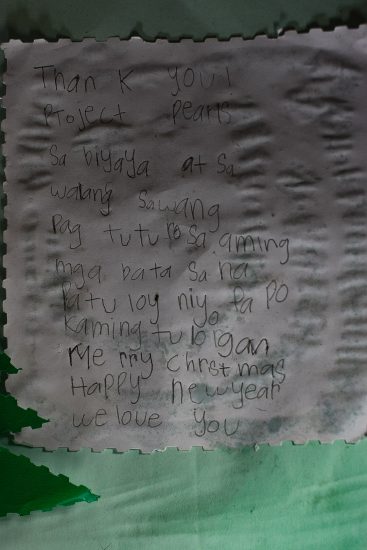 Thank you!
Project Pearls
Sa biyaya at sa
walang sawang
pag tuturo sa aming
mga bata sa na
Patuloy niyo pa po
kaming tulolgan
Me rry chrstmas
Happy new year
we love you